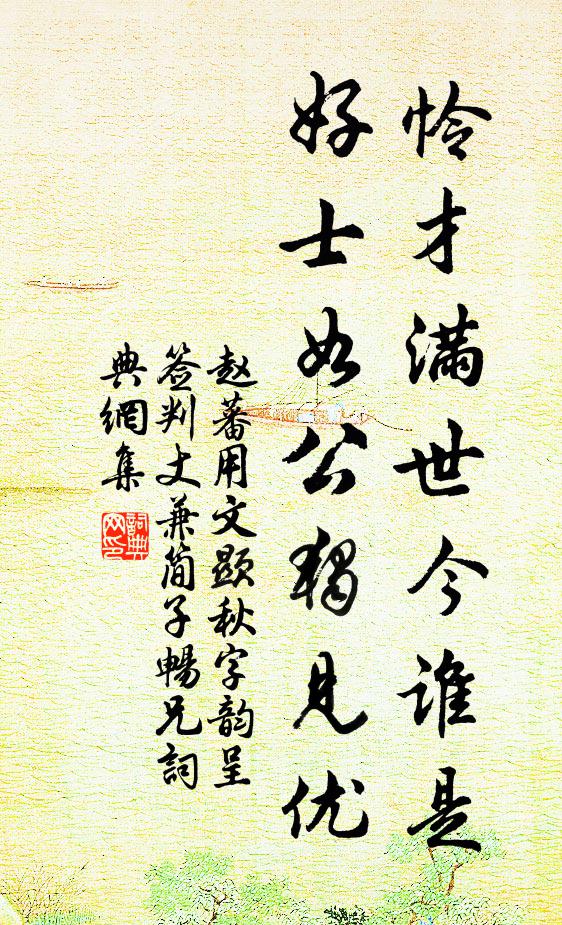 怜才满世今谁是
好士如公独见优
赵蕃用文显秋字韵呈
签判丈兼简子畅兄詞
典網集
詞典
网印